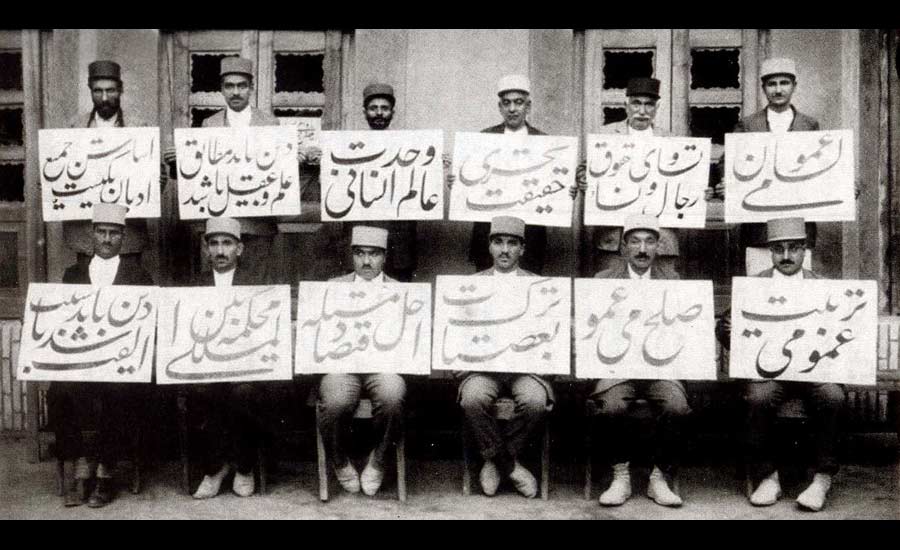 لسان عمومی
تساوی حقوق
رجال و نساء
تحری
حقیقت
وحدت
عالم انسانی
دین باید مطابق
علم و عقل باشد
اساس جمیع
ادیان یکیست
تربیت
عمومی
صلح عمومی
ترک
تعصبات
حل مسئله
اقتصاد
محکمه بین
المللی
دین باید سبب
الفت باشد